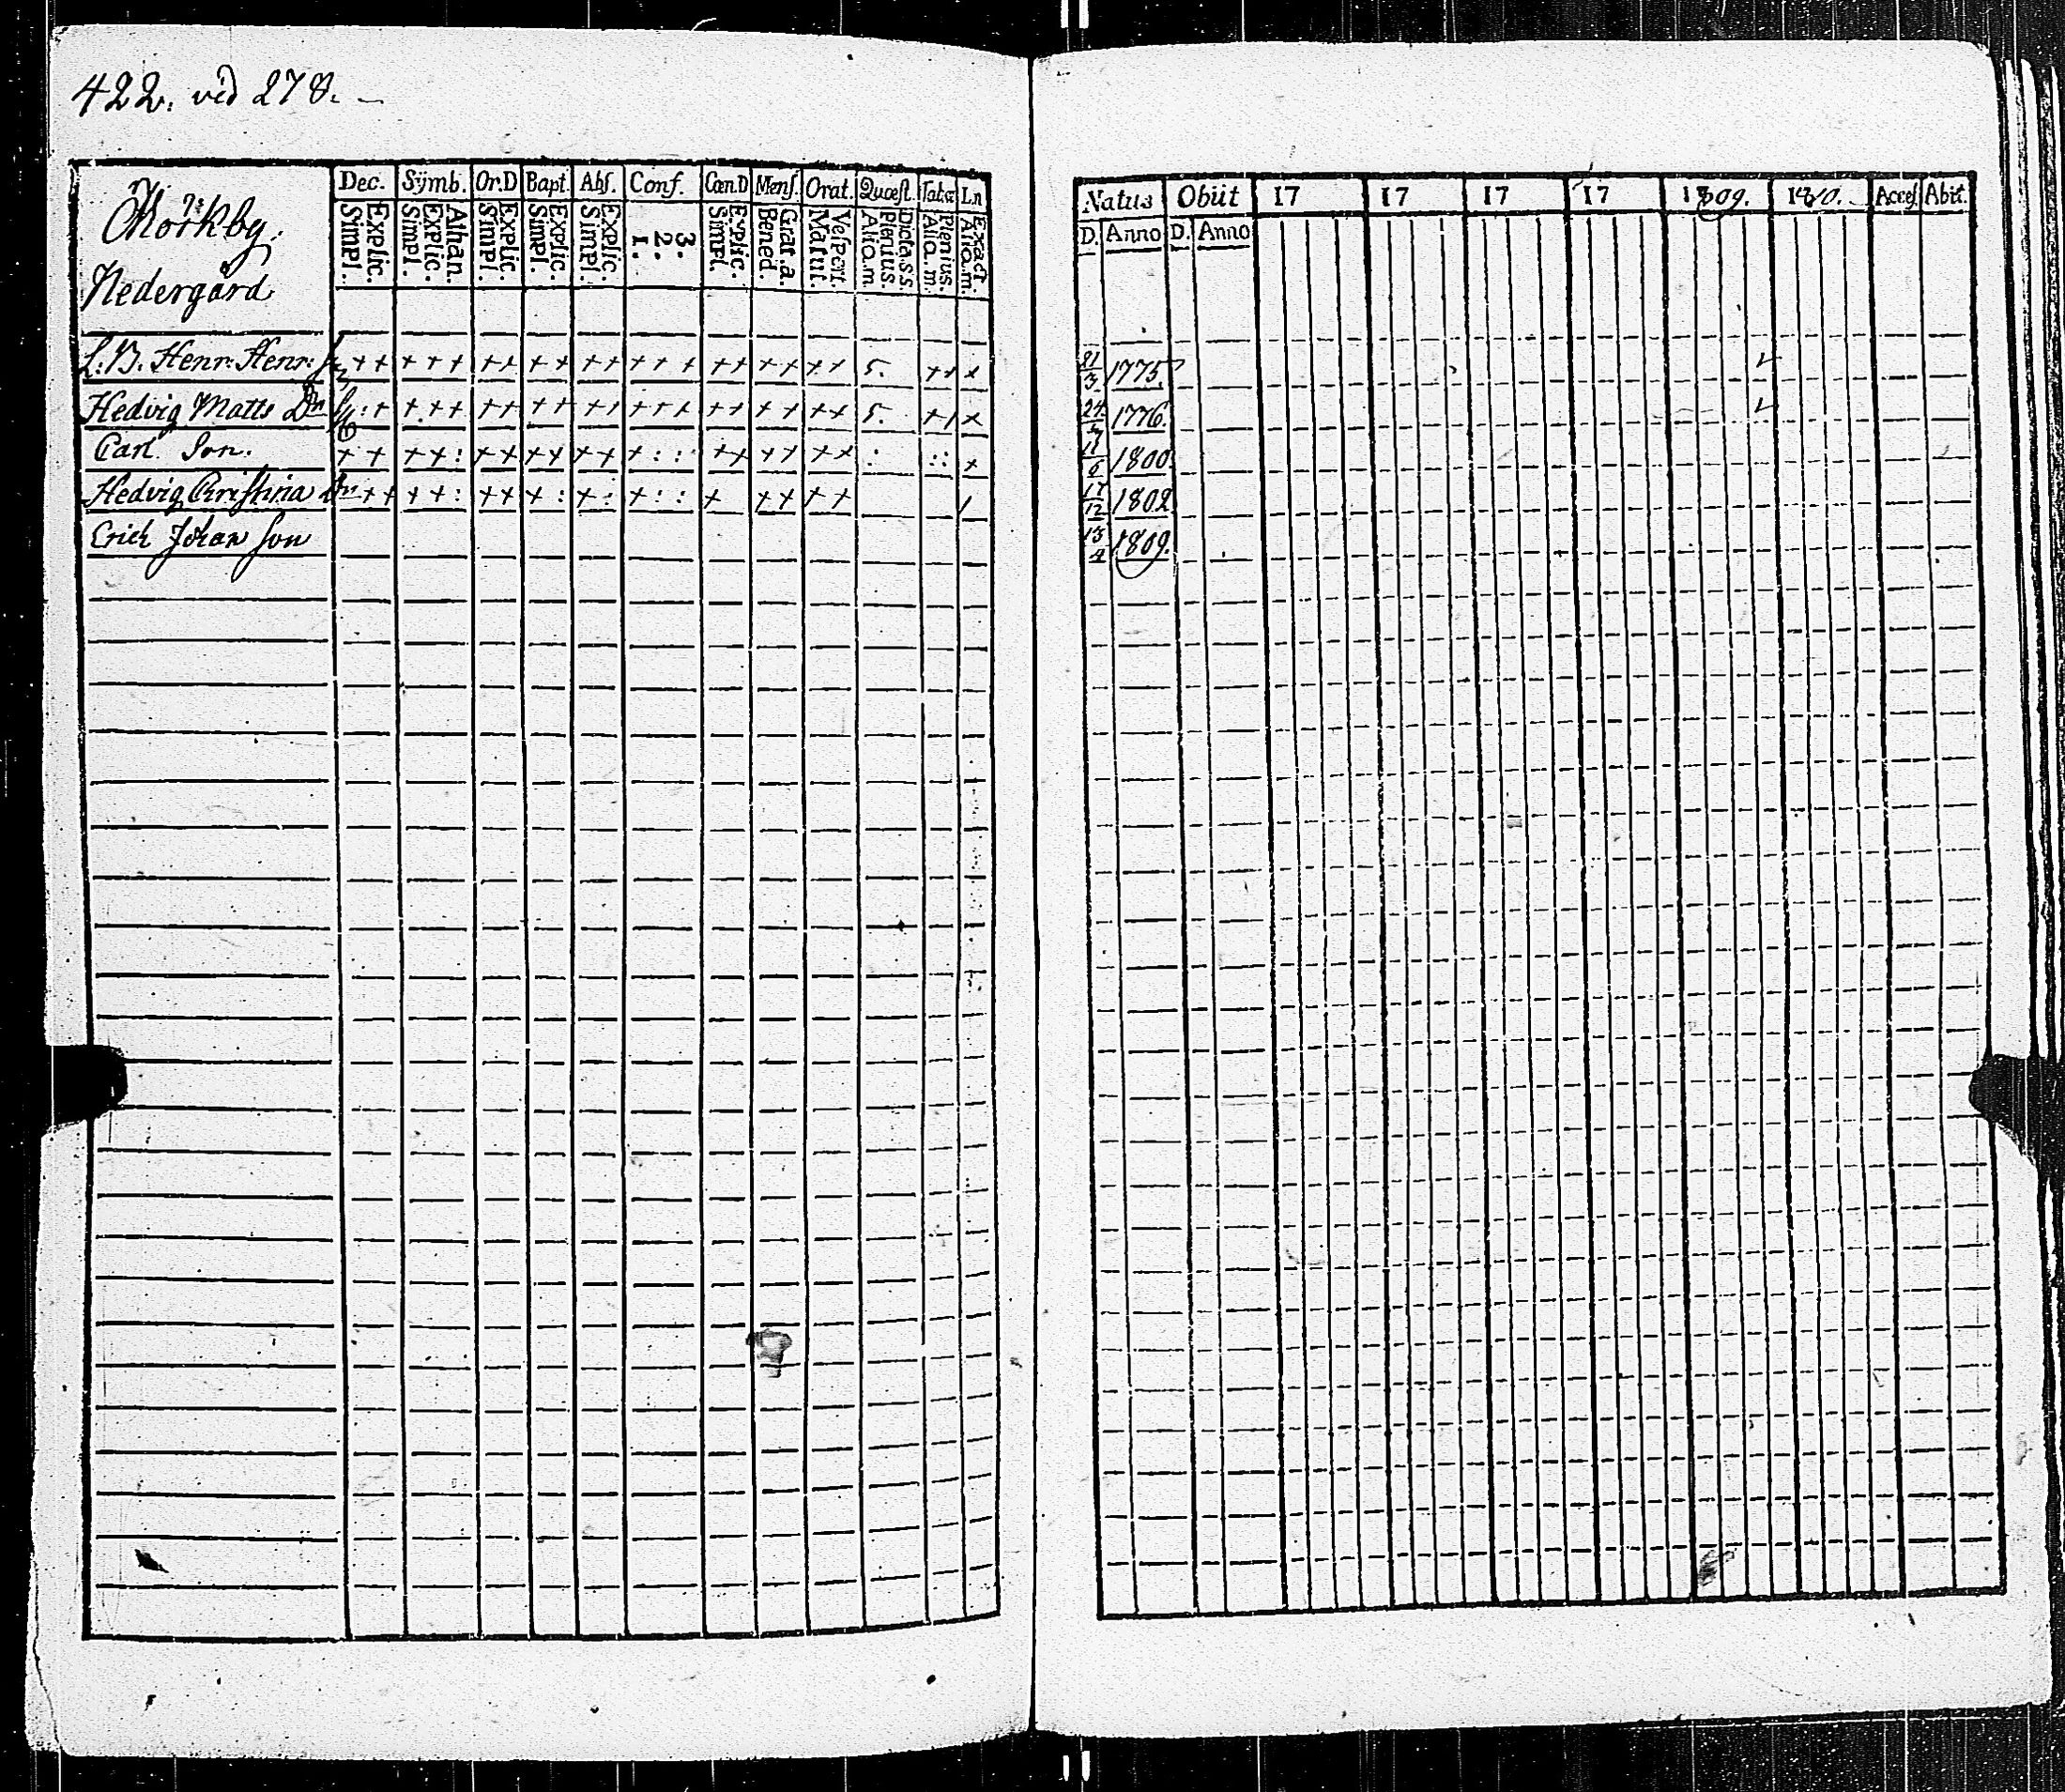 422. vid 278.
Mörkby.
Nedergård
Dec. Symb. Or.D Bapt. Abſ. Conf. Cœn.D Menſ. Orat. Quæſt. Tab.œ Ln
Explic. Simpl. Athan. Explic. Simpl. Explic. Simpl. Explic. Simpl. Explic. Simpl. 3. 2. 1. Explic. Simpl. Grat. a. Bened. Veſpert. Matut. Dicta.s.s. Plenius. Aliq.m. Plenius. Aliq.m. Exact. Aliq.m.
Natus Obiit 17 17 17 17 1809. 1810. Acceſ. Abiit.
D. Anno D. Anno
L: B. Henr: Henr: + + + + + + + + + + + + + + + + + + + + 5. + + x 21/3 1775
Hedvig Matts Dr : + + + + + + + + + + + + + + + + + + + 5. + x 24 1776.
Carl Son. + + + + : + + + + + + + : : + + + + + + : :: + 1800
Hedvig Christina Dr + + + + : + + + : + : + : : + + + + + 17/12 1802
Erich Johan Son 13 1809.